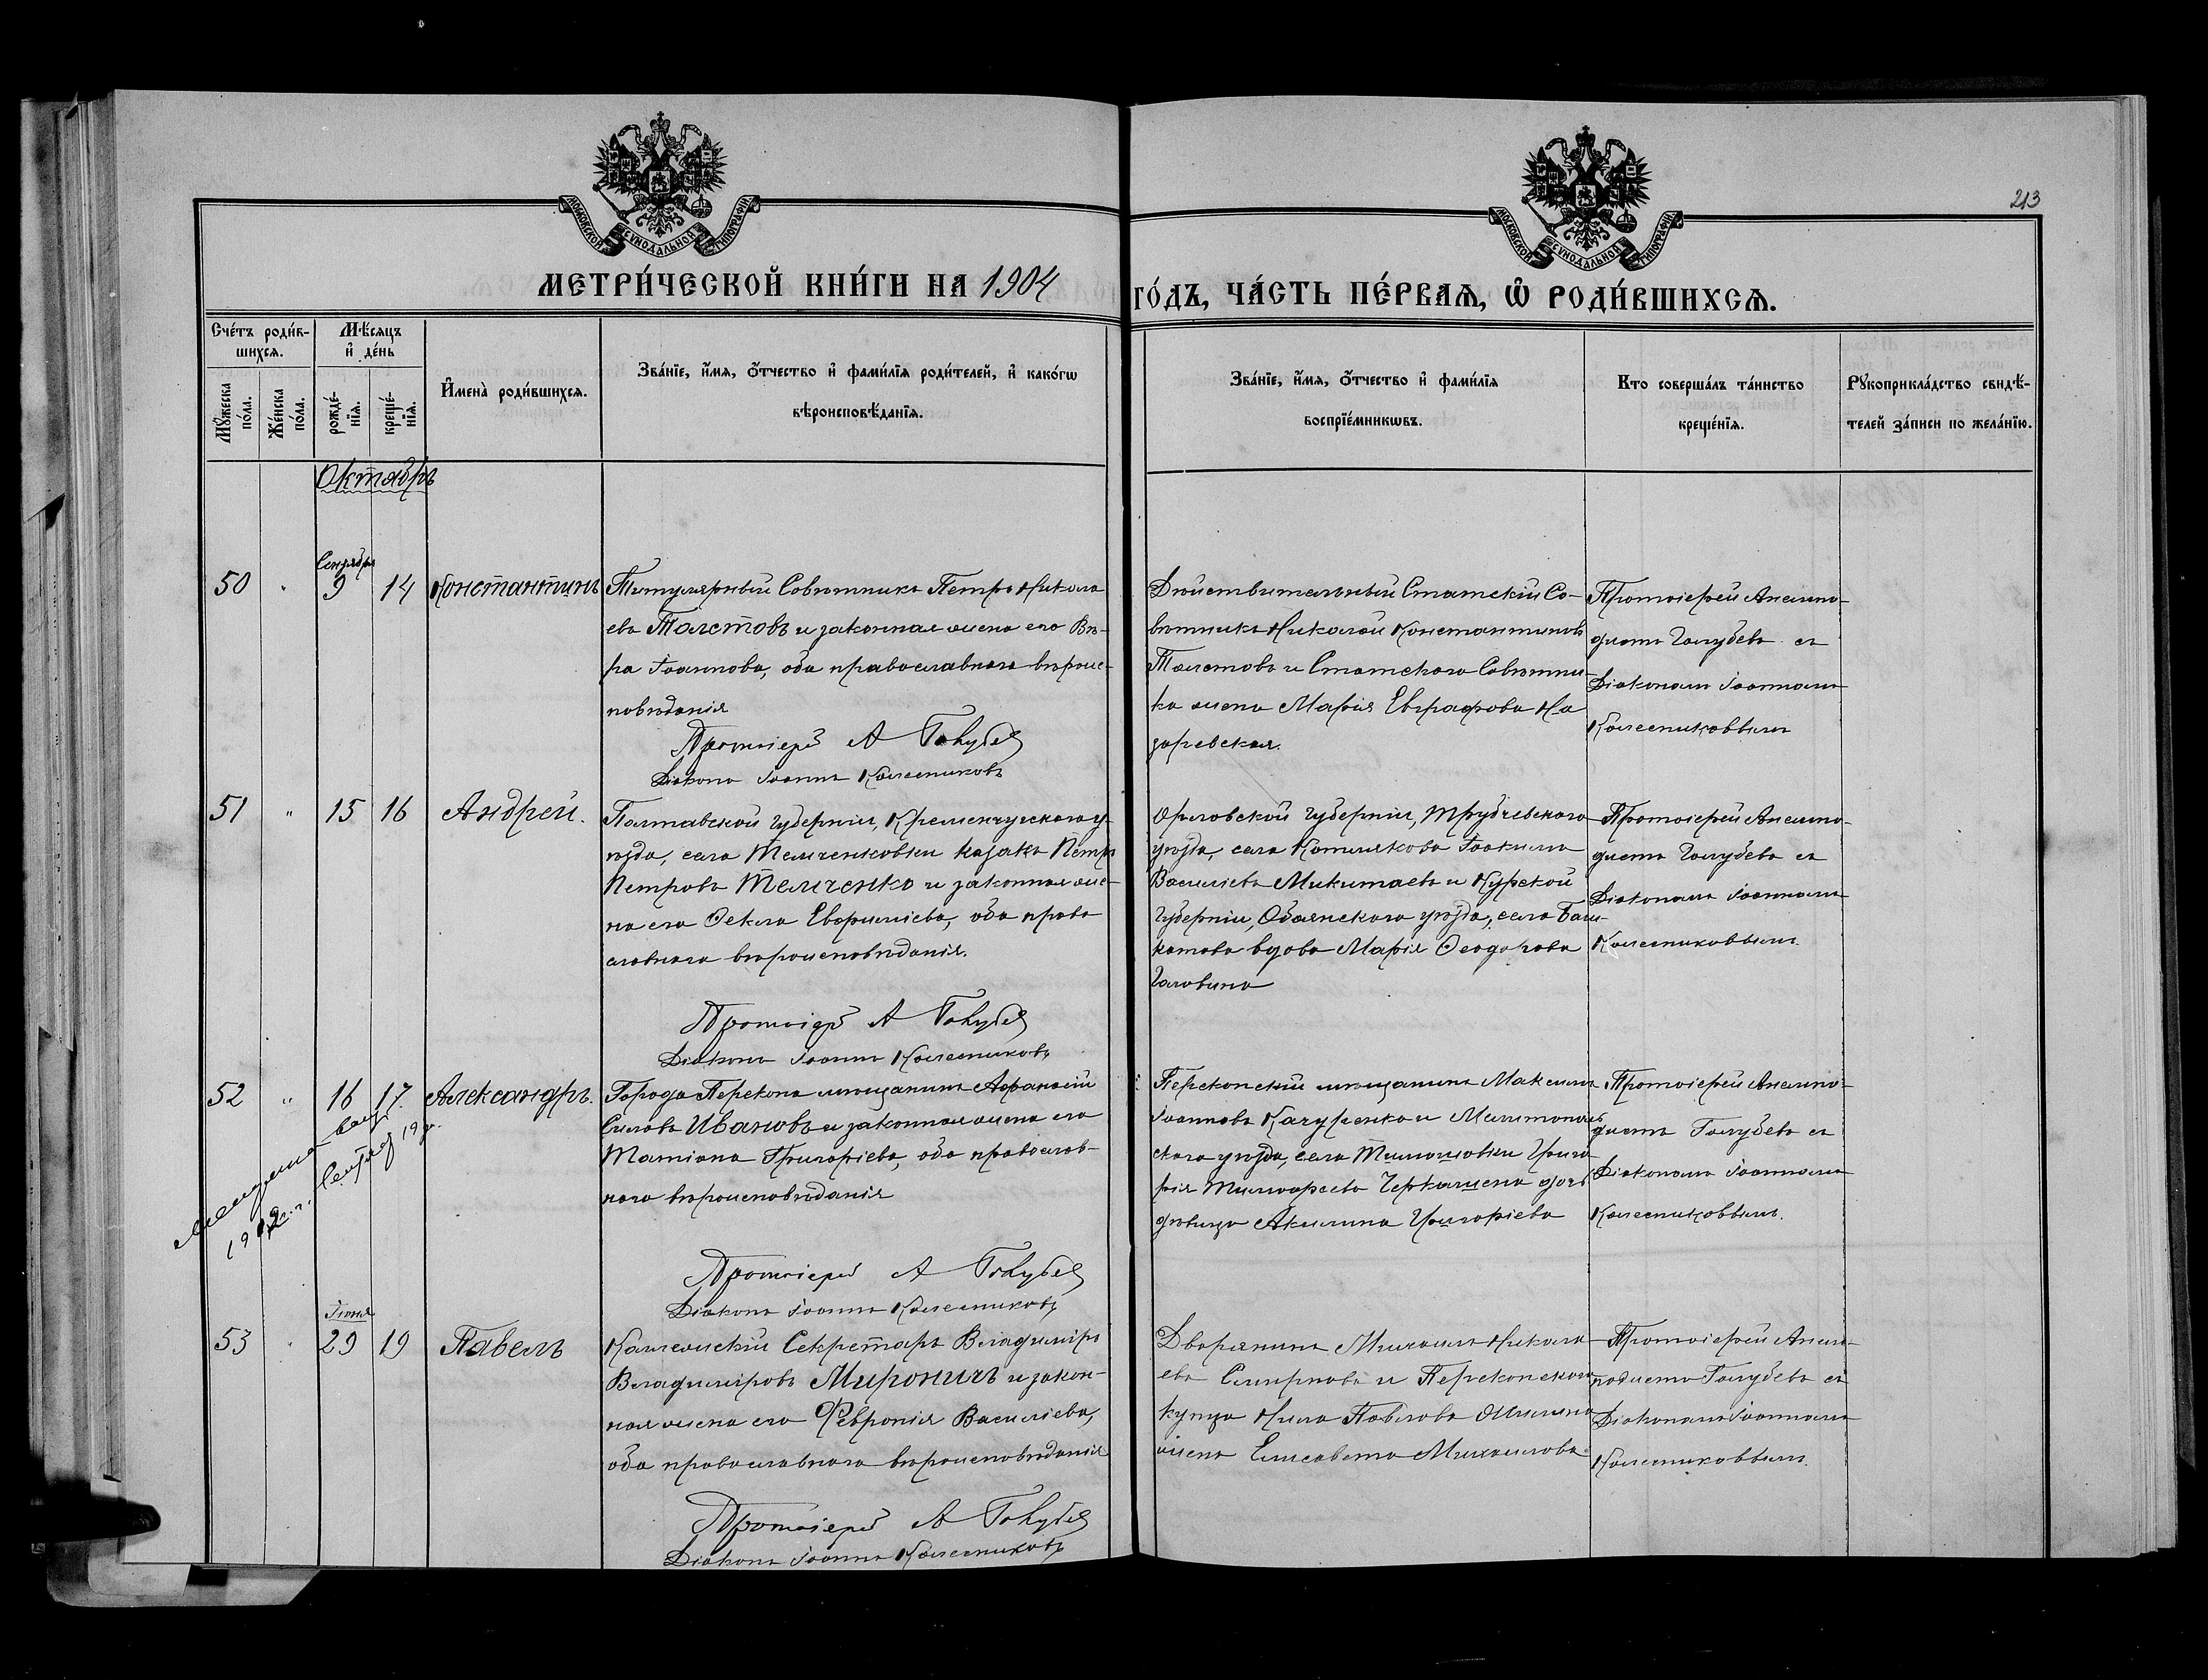 213
МОСКОВСКОЙ СѴНОДАЛЬНОЙ ТИПОГРАФІИ
МОСКОВСКОЙ СѴНОДАЛЬНОЙ ТИПОГРАФІИ
МЕТРИ́ЧЕСКОЙ КНИ́ГИ НА 1904
ГО́ДЪ, ЧА́СТЬ ПЕ́РВАѦ, Ѽ РОДИ́ВШИХСѦ.
Сче́тъ роди́в-
шихсѧ.
Мꙋ́жеска
по́ла.
Же́нска
по́ла.
Мѣ́сѧцъ
и҆ де́нь
рожде́-
нїѧ.
креще́-
нїѧ.
И҆мена̀ роди́вшихсѧ.
Зва́нїе, и҆́мѧ, ѻ҆́тчество и҆ фами́лїѧ роди́телей, и҆ како́гѡ
вѣроисповѣ́данїѧ.
Зва́нїе, и҆́мѧ, ѻ҆́тчество и҆ фами́лїѧ
воспрїе́мникѡвъ.
Кто соверша́лъ та́инство
креще́нїѧ.
Рꙋкоприкла́дство свидѣ́-
телей за́писи по жела́нїю.
Октябрь
Сентября
50 " 9 14 Константинъ
Титулярный Совѣтникъ Петръ Никола
евъ Толстовъ и законная жена его Вѣ-
ра Іоаннова, оба православнаго вѣроис-
повѣданія
Протоіерей А Голубев
Діаконъ Іоаннъ Колесниковъ
Дѣйствительный Статскій Со-
вѣтникъ Николай Константиновъ
Толстовъ и Статскаго Совѣтни-
ка жена Марія Евграфова На
заревская.
Протоіерей Анемпо-
дистъ Голубевъ съ
Діакономъ Іоанномъ
Колесниковымъ
51 " 15 16 Андрей.
Полтавской губерніи, Кременчугскаго у-
ѣзда, села Темченковки казакъ Петръ
Петровъ Темченко и законная же-
на его Ѳекла Евѳиміева, оба право
славнаго вѣроисповѣданія.
Протоіерей А Голубев
Діаконъ Іоаннъ Колесниковъ
Орловской губерніи, Трубчевскаго
уѣзда, села Котлякова Іоакимъ
Васильевъ Микитаевъ и Курской
губерніи, Обоянскаго уѣзда, села Баш-
катова вдова Марія Ѳеодорова
Головина
Протоіерей Анемпо-
дистъ Голубевъ съ
Діакономъ Іоанномъ
Колесниковымъ.
52 " 16 17. Александръ.
Города Перекопа мѣщанинъ Аѳанасій
Силовъ Ивановъ и законная жена его
Татіана Григоріева, оба православ-
наго вѣроисповѣданія
Протоіерей А Голубев
Діаконъ Іоаннъ Колесниковъ
Перекопскій мѣщанинъ Максимъ
Іоанновъ Качуренко и Мелитополь
скаго уѣзда, села Тимошовки Григо
рія Тимоѳеева Черкашена дочь
дѣвица Акилина Григоріева
Протоіерей Анемпо-
дистъ Голубевъ съ
Діакономъ Іоанномъ
Колесниковымъ.
Іюня
53 " 29 19 Павелъ
Коллежскій Секретарь Владиміръ
Владиміровъ Мироничъ и закон-
ная жена его Февронія Васильева,
оба православнаго вѣроисповѣданія
Протоіерей А Голубев
Діаконъ Іоаннъ Колесниковъ
Дворянинъ Михаилъ Никола
евъ Смирновъ и Перекопскаго
купца Нила Павлова
жена Елисавета Михаилова
Протоіерей Анем-
подистъ Голубевъ съ
Діакономъ Іоанномъ
Колесниковымъ.